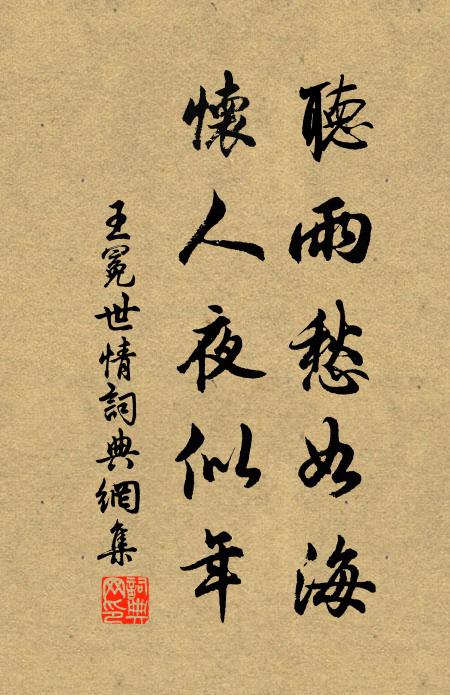 聽雨愁如海
懷人夜似年
王冕世情詞典網集
詞典網印